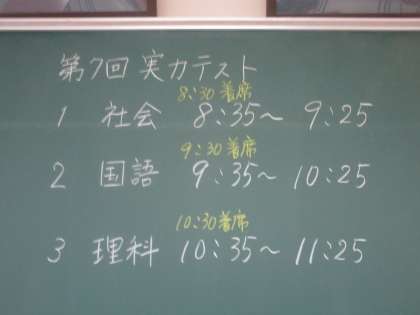 第7回 実力テスト
8:30 着席
1 社会 8:35～ 9:25
9:30 着席
2 国語 9:35～ 10:25
10:30 着席
3 理科 10:35～ 11:25